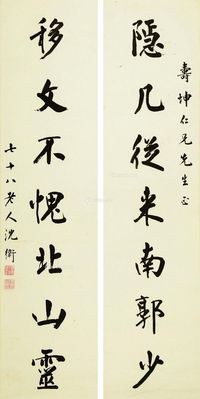 壽坤仁兄先生正
隱几從來南郭少
移文不愧北山靈
七十八老人沈衛